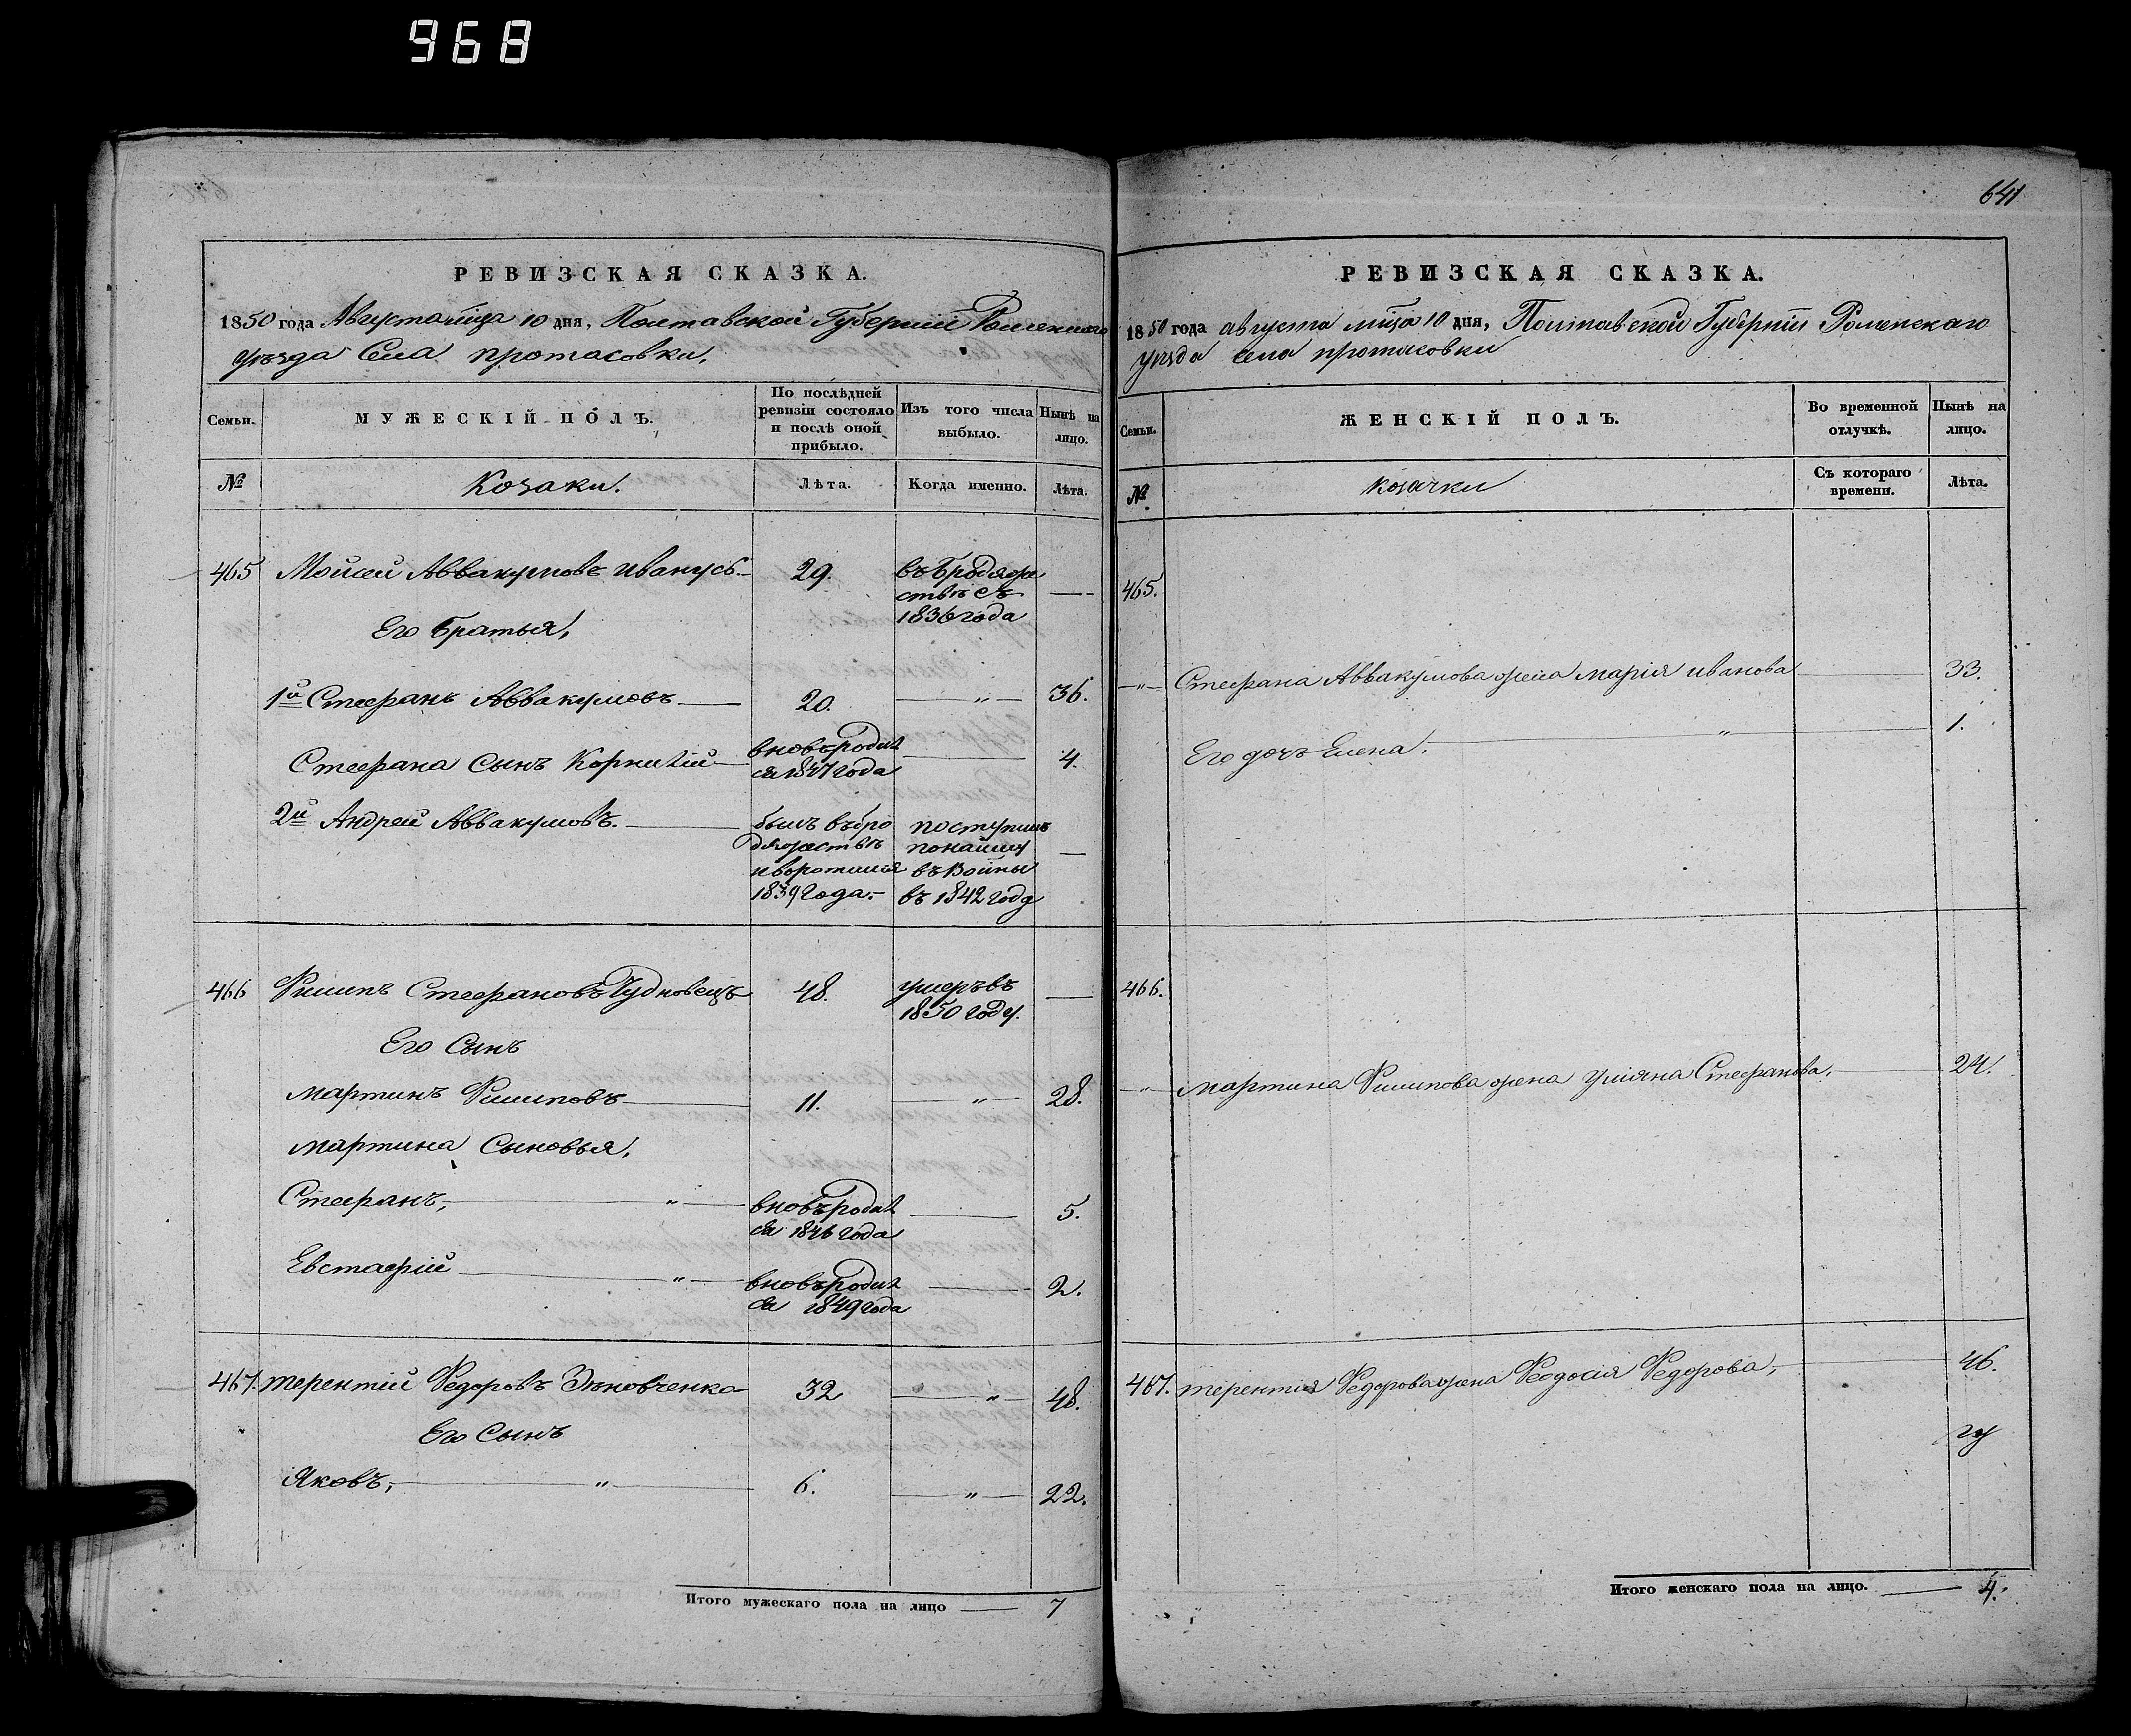 968
РЕВИЗСКАЯ СКАЗКА.
1850 года Августа мца 10 дня, Полтавской Губерніи Роменского
уѣзда Села протасовки.
Семьи.
МУЖЕСКІЙ ПОЛЪ.
По послѣдней
ревизіи состояло
и послѣ оной
прибыло.
Изъ того числа
выбыло.
Нынѣ на
лицо.
№
Козаки.
Лѣта.
Когда именно.
Лѣта.
465 Мойсей Аввакумовъ 29. въ бродяже
ствѣ съ
1836 года
Его братья,
1й Стефанъ Аввакумовъ 20. „ 36.
Стефана Сынъ Корнилій вновь родил
ся 1847 года 4.
2й Андрей Аввакумовъ. былъ въ бро
дяжествѣ
и воротился
1839 года.
поступилъ
по найму
въ Воины
въ 1842 году
466 Филипъ Стефановъ Чудновецъ 48. умеръ въ
1850 году.
Его Сынъ
Мартинъ Филиповъ 11. „ 28.
Мартина Сыновья,
Стефанъ, „ вновь родил
ся 1846 года 5.
Евстафій „ вновь родил
ся 1849 года 2.
467. Терентій Федоровъ Зѣновченко 32 „ 48.
Его Сынъ
Яковъ, „ 6. „ 22.
Итого мужескаго пола на лицо 7
641
РЕВИЗСКАЯ СКАЗКА.
1850 года августа мца 10 дня, Полтавской Губерніи Роменскаго
уѣзда села протасовки
Семьи.
ЖЕНСКІЙ ПОЛЪ.
Во временной
отлучкѣ.
Нынѣ на
лицо.
№
козачки
Съ котораго
времени.
Лѣта.
465.
„ Стефана Аввакумова жена Марія иванова 33.
Его дочь Елена. „ 1.
466.
„ Мартина Филипова жена Уліяна Стефанова. 24.
467. Терентія Федорова жена Феодосія Федорова, 46.
Итого женскаго пола на лицо. 4.